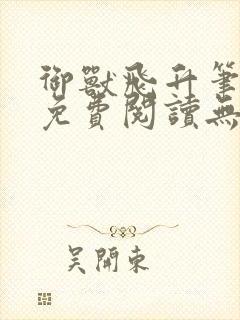 御獸飛升筆
免費閱讀無
吴開東